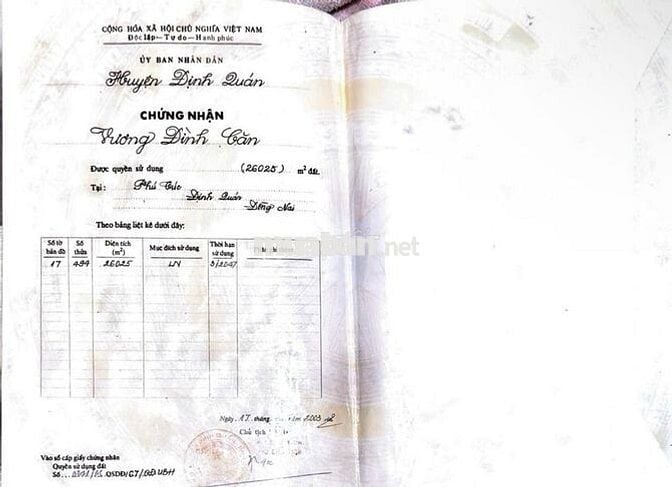 CỘNG HÒA XÃ HỘI CHỦ NGHĨA VIỆT NAM
Độc lập - Tự do - Hạnh phúc
ỦY BAN NHÂN DÂN
Huyện Định Quán
CHỨNG NHẬN
Vương Đình Căn
Được quyền sử dụng (26025) m² đất.
Tại: Phú Cúc
Định Quán
Đồng Nai
Theo bảng liệt kê dưới đây:
Số tờ bản đồ Số thửa Diện tích (m²) Mục đích sử dụng Thời hạn sử dụng
17 494 26025 LN 3/2047
.net
Ngày 17 tháng năm 2003
Chủ tịch
Vào sổ cấp giấy chứng nhận
Quyền sử dụng đất
Số QSDĐ/G7/QĐUBH